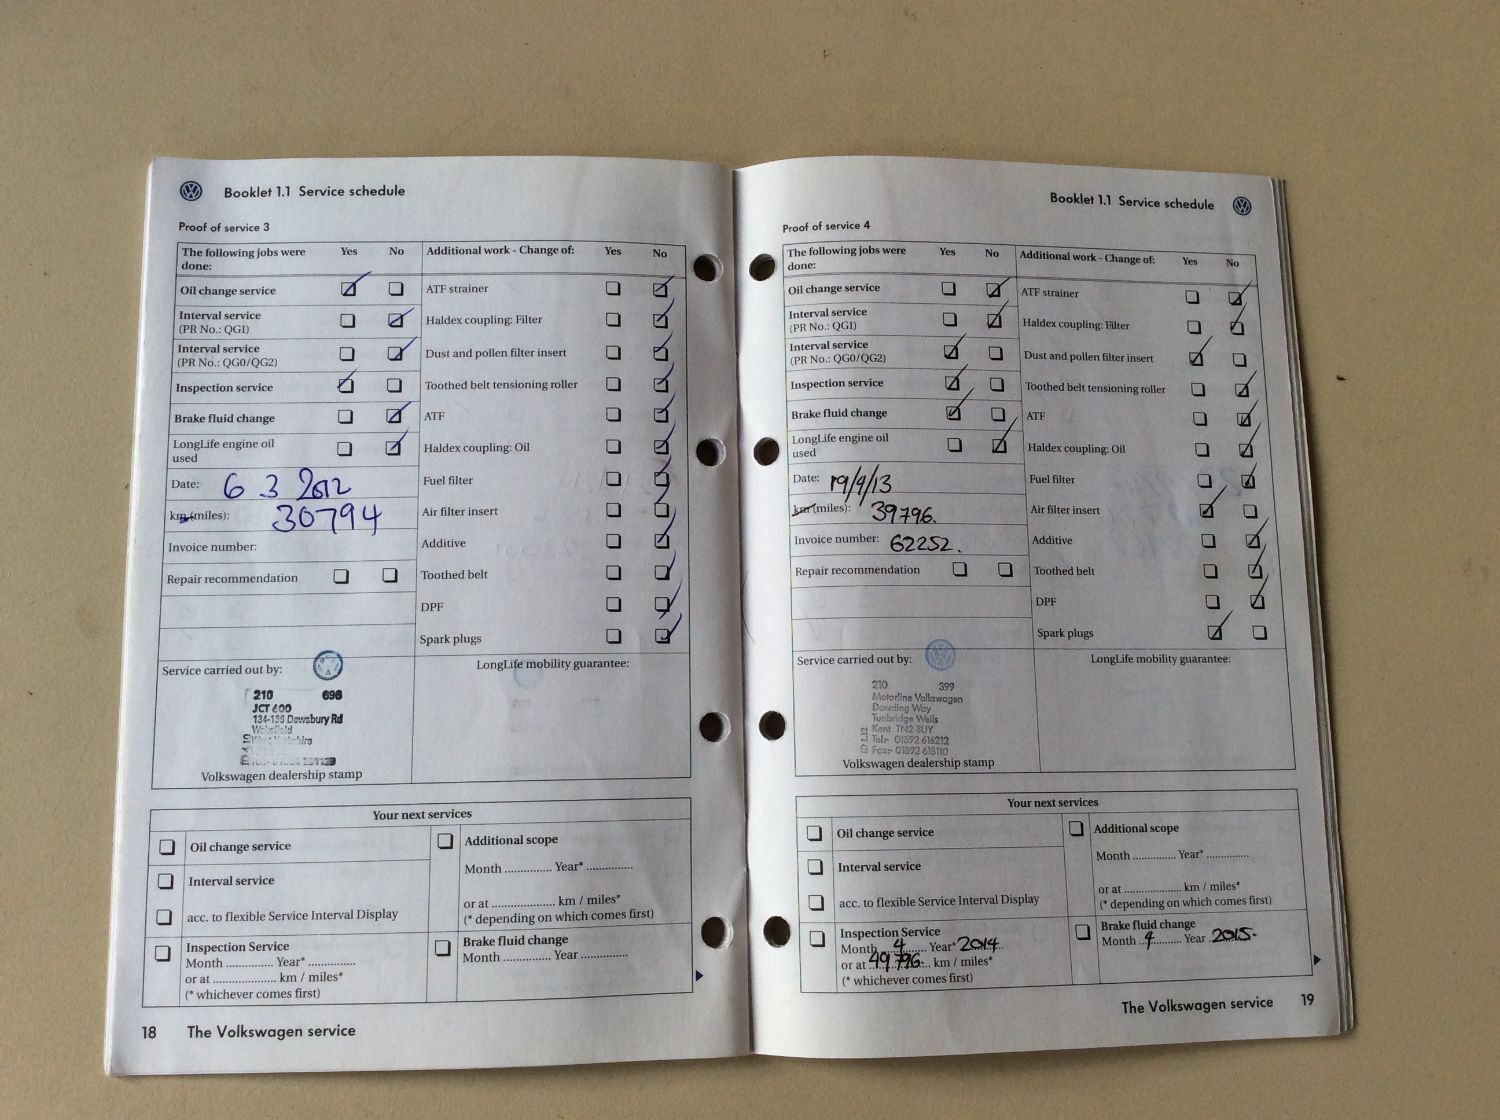 Booklet 1.1 Service schedule
Proof of service 3
The following jobs were done: Yes No
Oil change service
Interval service
(PR No.: QG1)
Interval service
(PR No.: QG0/QG2)
Inspection service
Brake fluid change
LongLife engine oil
used
Date: 6 3 2012
km (miles): 30794
Invoice number:
Repair recommendation
Additional work - Change of: Yes No
ATF strainer
Haldex coupling: Filter
Dust and pollen filter insert
Toothed belt tensioning roller
ATF
Haldex coupling: Oil
Fuel filter
Air filter insert
Additive
Toothed belt
DPF
Spark plugs
Service carried out by:
210 696
JCT 600
134-136 Dewsbury Rd
Volkswagen dealership stamp
LongLife mobility guarantee:
Your next services
Oil change service
Interval service
acc. to flexible Service Interval Display
Inspection Service
Month .............. Year* ..............
or at .................... km / miles*
(* whichever comes first)
Additional scope
Month .............. Year* ..............
or at .................... km / miles*
(* depending on which comes first)
Brake fluid change
Month .............. Year ..............
18 The Volkswagen service
Booklet 1.1 Service schedule
Proof of service 4
The following jobs were done: Yes No
Oil change service
Interval service
(PR No.: QG1)
Interval service
(PR No.: QG0/QG2)
Inspection service
Brake fluid change
LongLife engine oil
used
Date: 19/9/13
km (miles): 39796.
Invoice number: 62252.
Repair recommendation
Additional work - Change of: Yes No
ATF strainer
Haldex coupling: Filter
Dust and pollen filter insert
Toothed belt tensioning roller
ATF
Haldex coupling: Oil
Fuel filter
Air filter insert
Additive
Toothed belt
DPF
Spark plugs
Service carried out by:
210 399
Motorline Volkswagen
Dowding Way
Tunbridge Wells
Kent TN2 3UY
Tel:- 01892 616212
Fax:- 01892 618110
Volkswagen dealership stamp
LongLife mobility guarantee:
Your next services
Oil change service
Interval service
acc. to flexible Service Interval Display
Inspection Service
Month 4 Year* 2014
or at 49796 km / miles*
(* whichever comes first)
Additional scope
Month .............. Year* ..............
or at .................... km / miles*
(* depending on which comes first)
Brake fluid change
Month 9 Year 2015
The Volkswagen service 19